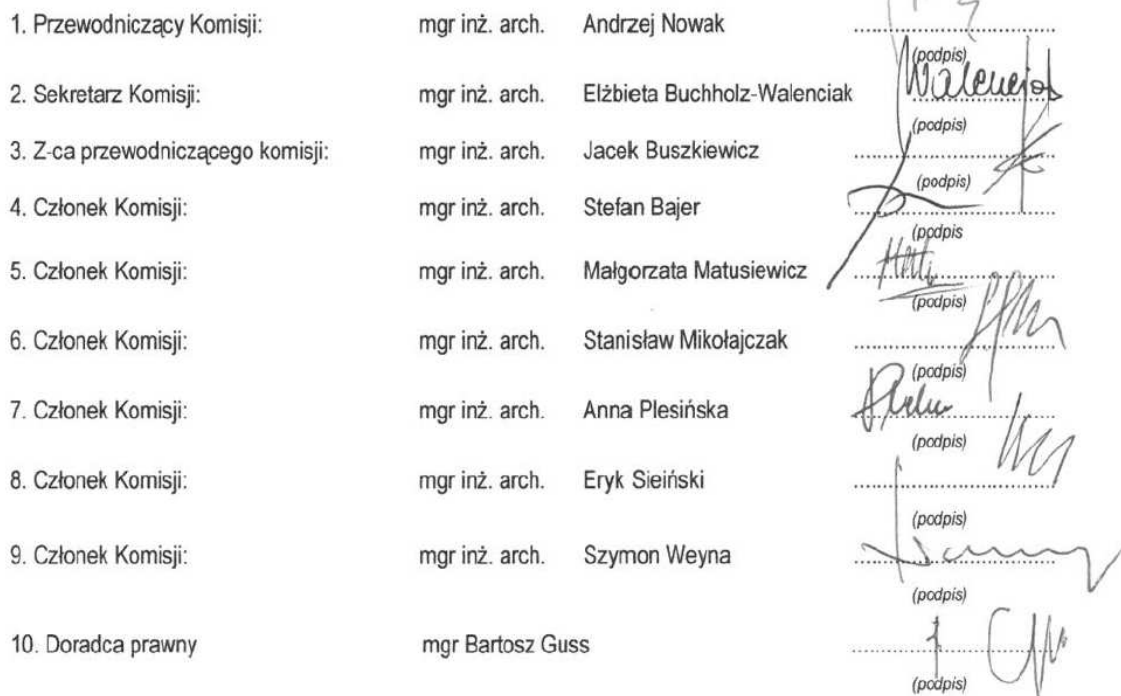 1. Przewodniczący Komisji: mgr inż. arch. Andrzej Nowak ........................
(podpis)
2. Sekretarz Komisji: mgr inż. arch. Elżbieta Buchholz-Walenciak ........................
(podpis)
3. Z-ca przewodniczącego komisji: mgr inż. arch. Jacek Buszkiewicz ........................
(podpis)
4. Członek Komisji: mgr inż. arch. Stefan Bajer ........................
(podpis
5. Członek Komisji: mgr inż. arch. Małgorzata Matusiewicz ........................
(podpis)
6. Członek Komisji: mgr inż. arch. Stanisław Mikołajczak ........................
(podpis)
7. Członek Komisji: mgr inż. arch. Anna Plesińska ........................
(podpis)
8. Członek Komisji: mgr inż. arch. Eryk Sieiński ........................
(podpis)
9. Członek Komisji: mgr inż. arch. Szymon Weyna ........................
(podpis)
10. Doradca prawny mgr Bartosz Guss ........................
(podpis)